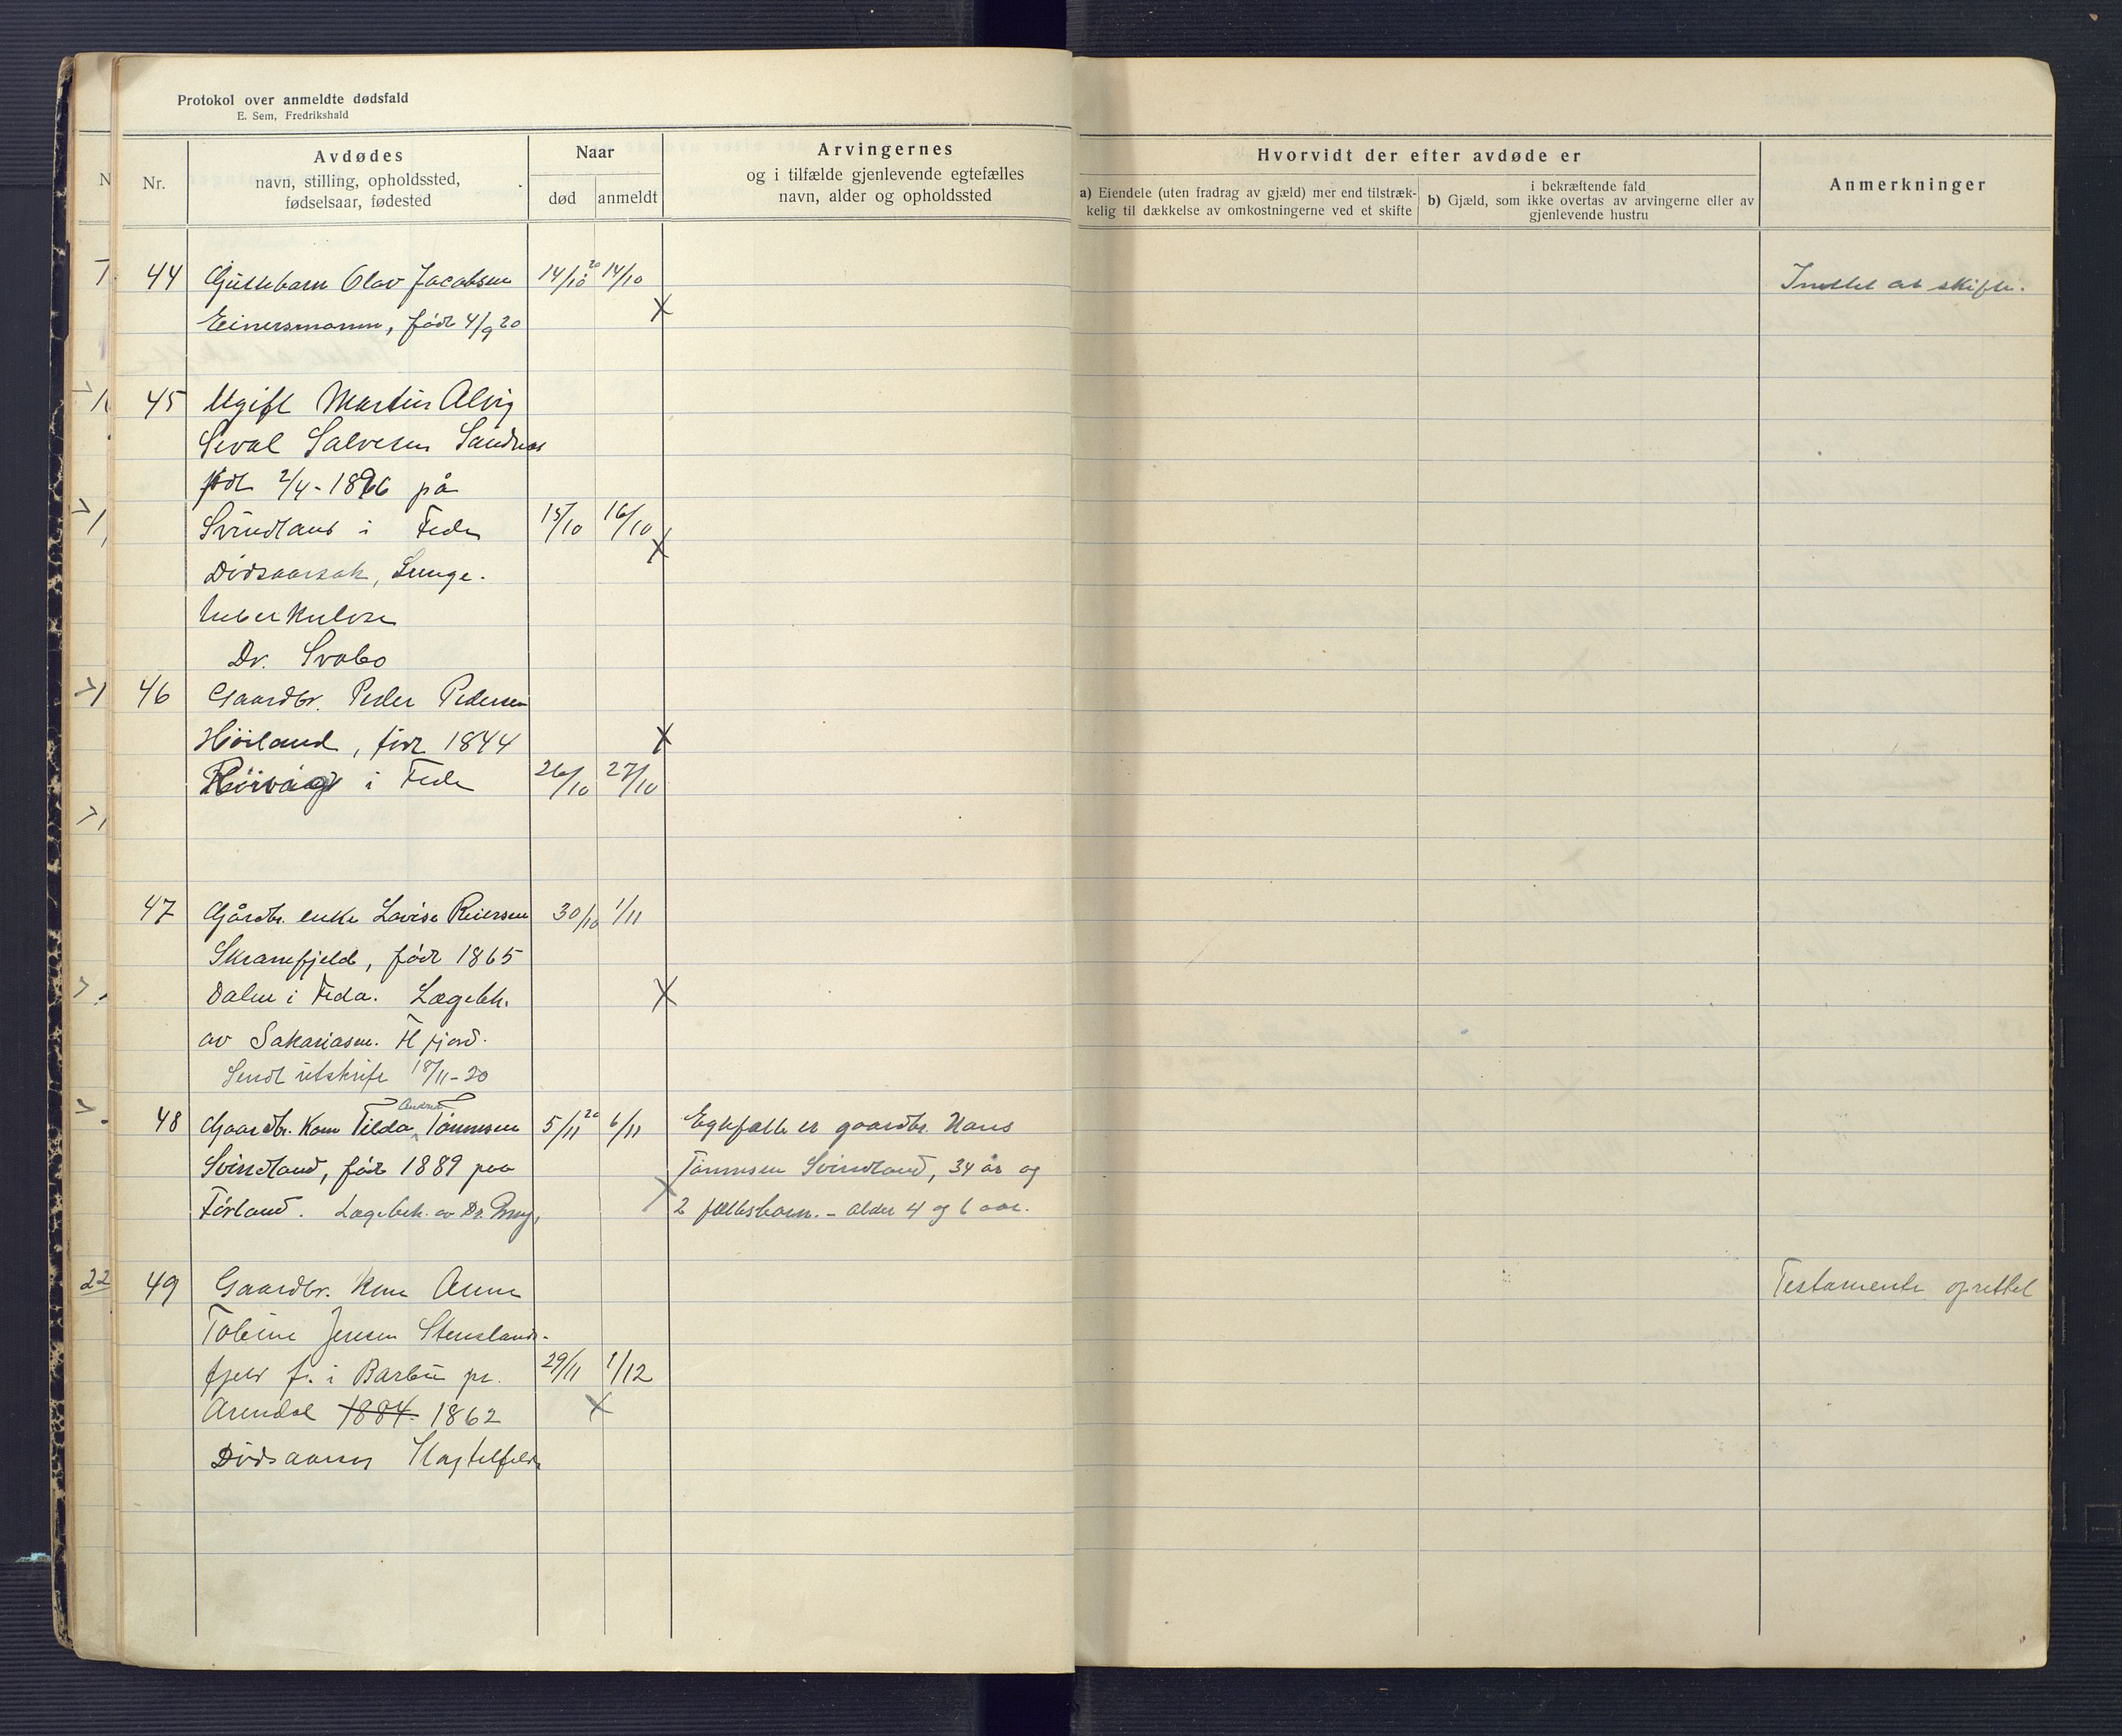 Protokol over anmeldte dødsfald
E. Sem, Fredrikshald
Nr.
Avdødes
navn, stilling, opholdssted,
fødselsaar, fødested
Naar
død
anmeldt
Arvingernes
og i tilfælde gjenlevende egtefælles
navn, alder og opholdssted
Hvorvidt der efter avdøde er
a) Eiendele (uten fradrag av gjæld) mer end tilstræk-
kelig til dækkelse av omkostningerne ved et skifte
i bekræftende fald
b) Gjæld, som ikke overtas av arvingerne eller av
gjenlevende hustru
Anmerkninger
44 Guttebarn Olav Jacobsen 14/10 20 14/10 Intet at skifte.
Einersmoen, født 4/9 20 X
45 Ugift Martin Alvig
Sival Salvesen Sandnes
født 2/4-1896 på
Svindland i Feda 15/10 16/10 X
Dødsaarsak, Lunge-
tuberkulose
Dr. Svabo
46 Gaardbr. Peder Pedersen
Höiland, född 1844 X
Rörvåg i Feda 26/10 27/10
47 Gårdbr. enke Lovise Reiersen 30/10 1/11
Skranefjeld, född 1865
Dalen i Feda. Lægebeh. X
av Sakariasen. Fl fjord.
Sendt utskrift 18/11-20
Andrea
48 Gaardbr. Kone Tilda Tönnesen 5/11 20 6/11 Egtefælle er gaardbr. Hans
Svindland, född 1889 paa Tönnesen Svindland, 34 år og
Förland. Lægebeh. av Dr. X 2 fællesbarn. - alder 4 og 6 aar.
49 Gaardbr. Kone Anne Testamente oprettet
Tobine Jensen Stenslands-
fjeld f. i Barbu pr. 29/11 1/12
Arendal 1884 1862 X
Dødsaarsag Slagtilfælde
22